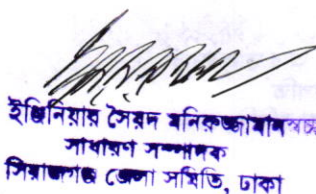 ইঞ্জিনিয়ার সৈয়দ মনিরুজ্জামান
সাধারণ সম্পাদক
সিরাজগঞ্জ জেলা সমিতি, ঢাকা